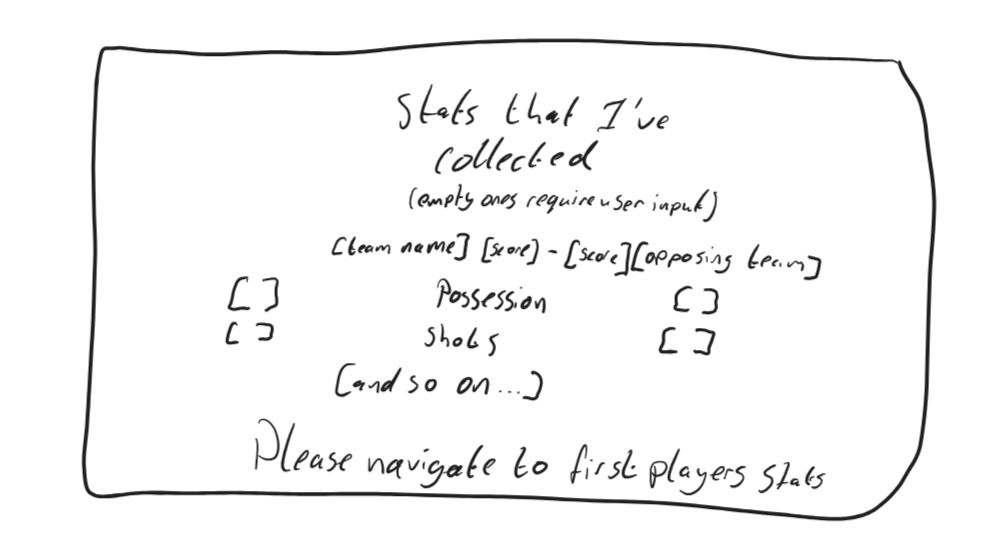 Stats that I've
collected
(empty ones require user input)
[team name] [score] - [score][opposing team]
[ ] Possession [ ]
[ ] Shots [ ]
[and so on...]
Please navigate to first players stats